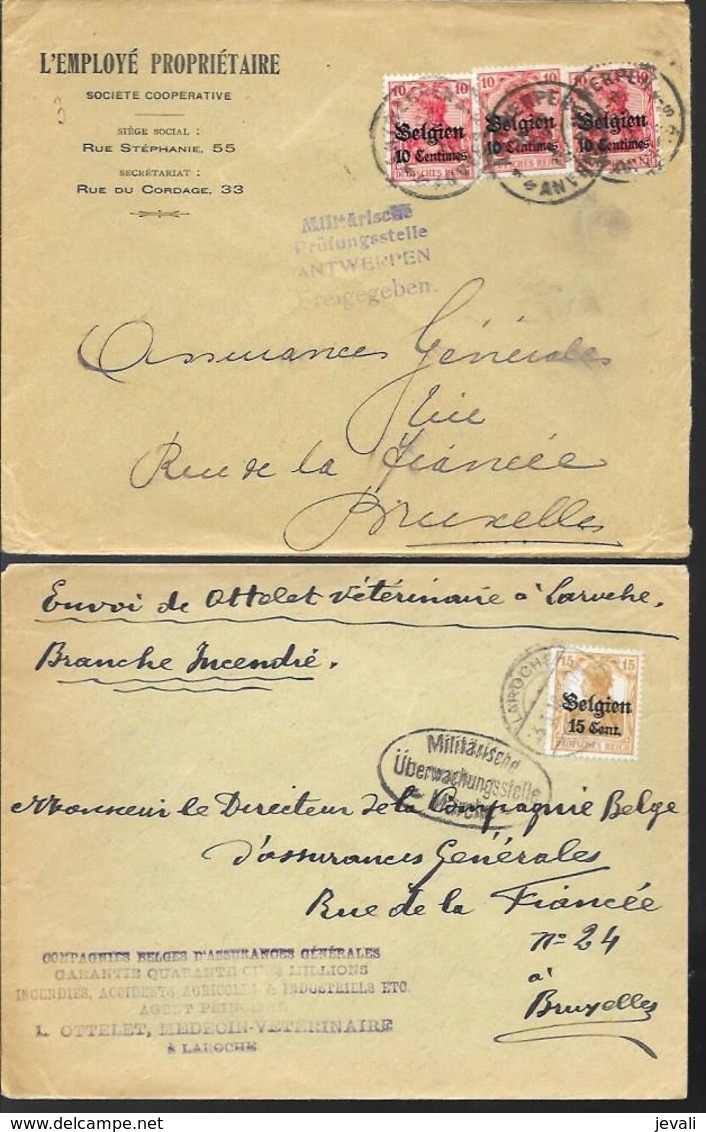 L'EMPLOYÉ PROPRIÉTAIRE
SOCIÉTÉ COOPÉRATIVE
SIÈGE SOCIAL :
RUE STÉPHANIE, 55
SECRÉTARIAT :
RUE DU CORDAGE, 33
10 10
Belgien
10 Centimes
DEUTSCHES REICH
10
Belgien
10 Centimes
DEUTSCHES REICH
10
Belgien
10 Centimes
Militärische
Prüfungsstelle
ANTWERPEN
Freigegeben.
Assurances Générales
Rue de la Fiancée
Bruxelles
Envoi de Ottelet vétérinaire à Laroche.
Branche Incendie.
LAROCHE
15 15
Belgien
15 Cent.
DEUTSCHES REICH
Militärische
Überwachungsstelle
Monsieur le Directeur de la Compagnie Belge
d'assurances Générales
Rue de la Fiancée
n° 24
à
Bruxelles
COMPAGNIES BELGES D'ASSURANCES GÉNÉRALES
GARANTIE QUARANTE CINQ MILLIONS
INCENDIES, ACCIDENTS AGRICOLES & INDUSTRIELS ETC.
AGENT PRINCIPAL
L. OTTELET, MEDECIN-VETÉRINAIRE
à LAROCHE
delcampe.net
jevali